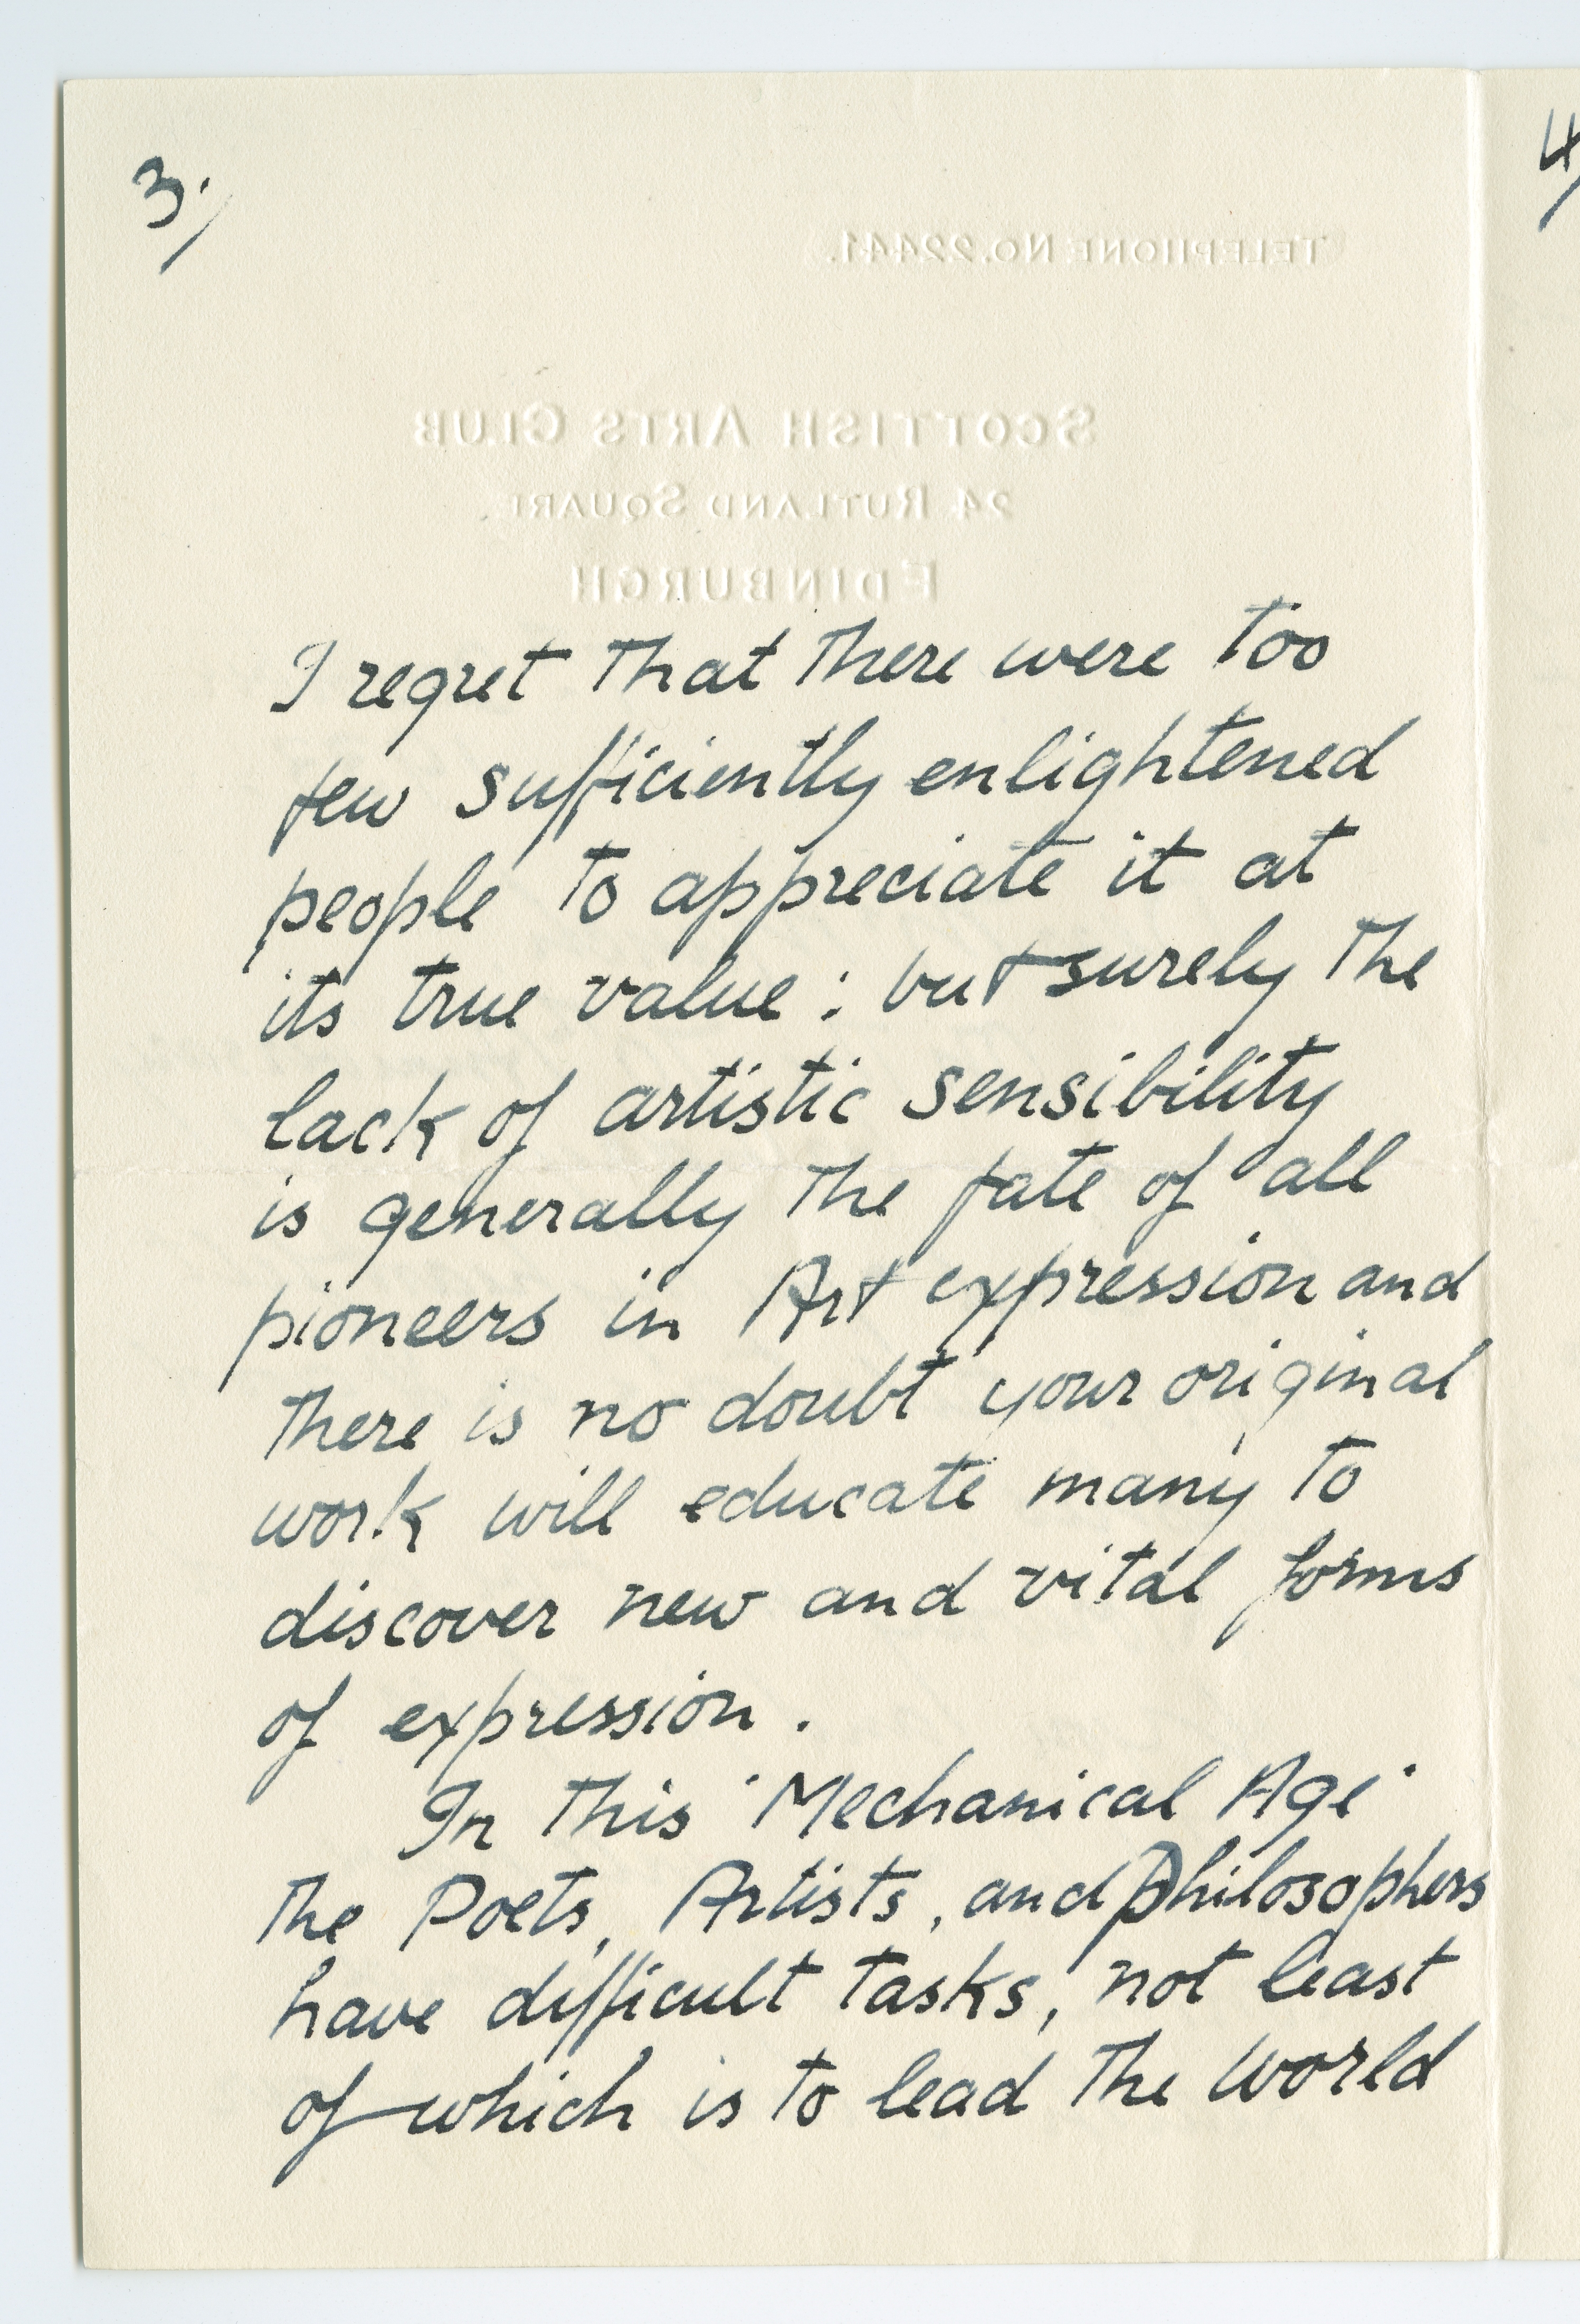 3./
4/
TELEPHONE NO. 22441.
SCOTTISH ARTS CLUB
24 RUTLAND SQUARE,
EDINBURGH
I regret that there were too
few sufficiently enlightened
people to appreciate it at
its true value : but surely the
lack of artistic sensibility
is generally the fate of all
pioneers in Art expression and
there is no doubt your original
work will educate many to
discover new and vital forms
of expression.
In this 'Mechanical Age'
the Poets, Artists, and Philosophers
have difficult tasks, not least
of which is to lead the world